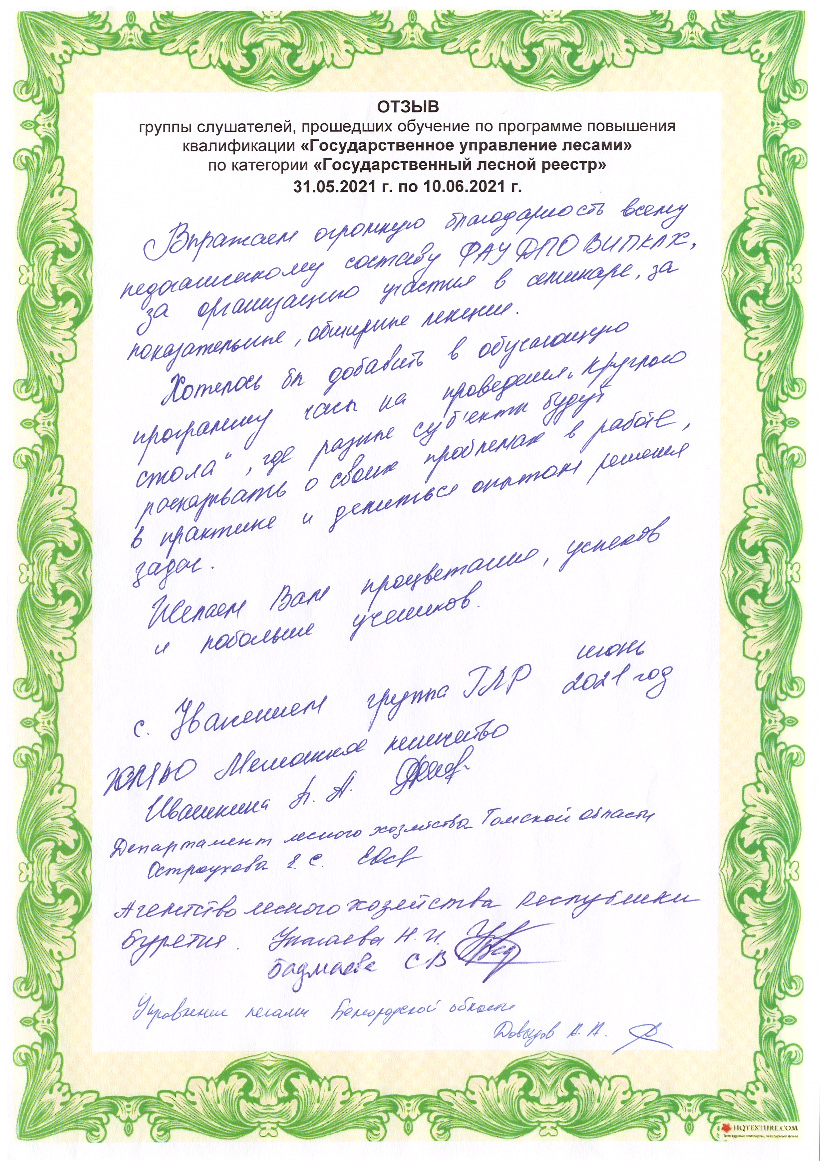 ОТЗЫВ
группы слушателей, прошедших обучение по программе повышения
квалификации «Государственное управление лесами»
по категории «Государственный лесной реестр»
31.05.2021 г. по 10.06.2021 г.
Выражаем огромную благодарность всему
педагогическому составу ФАУ ДПО ВИПКЛХ,
за организацию участия в семинаре, за
показательные, обширные лекции.
Хотелось бы добавить в обучающую
программу часы на проведения „Круглого
стола“, где разные суб'екты будут
рассказывать о своих проблемах в работе,
в практике и делиться опытом решения
задач.
Желаем Вам процветания, успехов
и побольше учеников.
с. Уважением группа ГЛР июнь
2021 год
ХМАО лесничество
Ивашкина А.
Департамент лесного хозяйства Томской области
Остроухова Е. С.
Агентство лесного хозяйства Республики
Бурятия. Н. И.
Бадмаева С В
Управление лесами Белгородской области
Давыдов А. А.
HQTEXTURE.COM